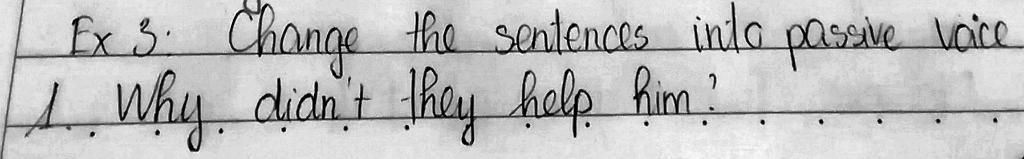 Ex 3: Change the sentences into passive voice
1. Why didn't they help him?